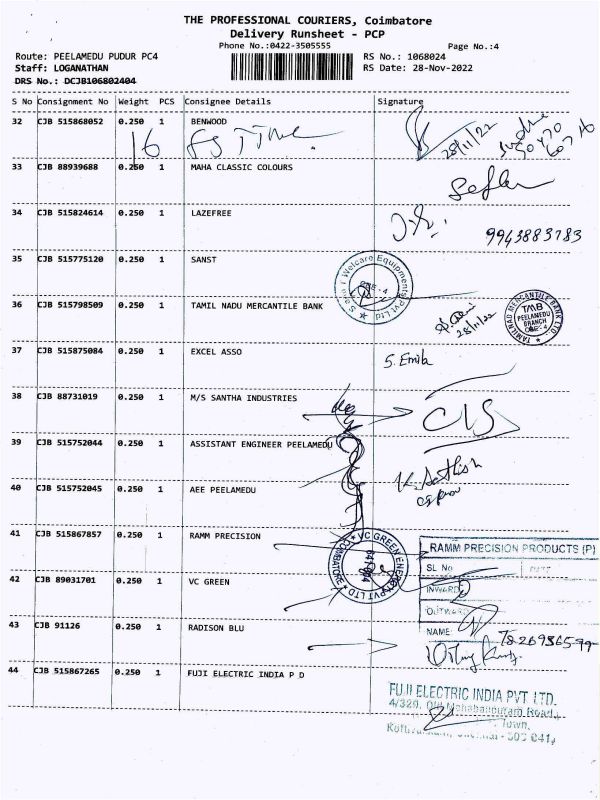 THE PROFESSIONAL COURIERS, Coimbatore
Delivery Runsheet - PCP
Phone No.:0422-3505555
Page No.:4
Route: PEELAMEDU PUDUR PC4
RS No.: 1068024
Staff: LOGANATHAN
RS Date: 28-Nov-2022
DRS No.: DCJB106802404
S No Consignment No Weight PCS Consignee Details Signature
32 CJB 515868052 0.250 1 BENWOOD
28/11/22
16
33 CJB 88939688 0.250 1 MAHA CLASSIC COLOURS
34 CJB 515824614 0.250 1 LAZEFREE
9943883783
35 CJB 515775120 0.250 1 SANST
Welcare Equipments Pvt Ltd
CBE - 4
36 CJB 515798509 0.250 1 TAMIL NADU MERCANTILE BANK
28/11/22
TAMILNAD MERCANTILE BANK LTD
TMB
PEELAMEDU
BRANCH
CBE - 4
37 CJB 515875084 0.250 1 EXCEL ASSO
38 CJB 88731019 0.250 1 M/S SANTHA INDUSTRIES
39 CJB 515752044 0.250 1 ASSISTANT ENGINEER PEELAMEDU
40 CJB 515752045 0.250 1 AEE PEELAMEDU
41 CJB 515867857 0.250 1 RAMM PRECISION
VC GREEN ENERGY PVT LTD
COIMBATORE
641 004
RAMM PRECISION PRODUCTS (P)
SL No
DATE
42 CJB 89031701 0.250 1 VC GREEN
INWARD
OUTWARD
43 CJB 91126 0.250 1 RADISON BLU
NAME:
7826936599
44 CJB 515867265 0.250 1 FUJI ELECTRIC INDIA P D
FUJI ELECTRIC INDIA PVT. LTD.
4/329, Old Mahabalipuram Road,
Town,
Chennai - 603 041,